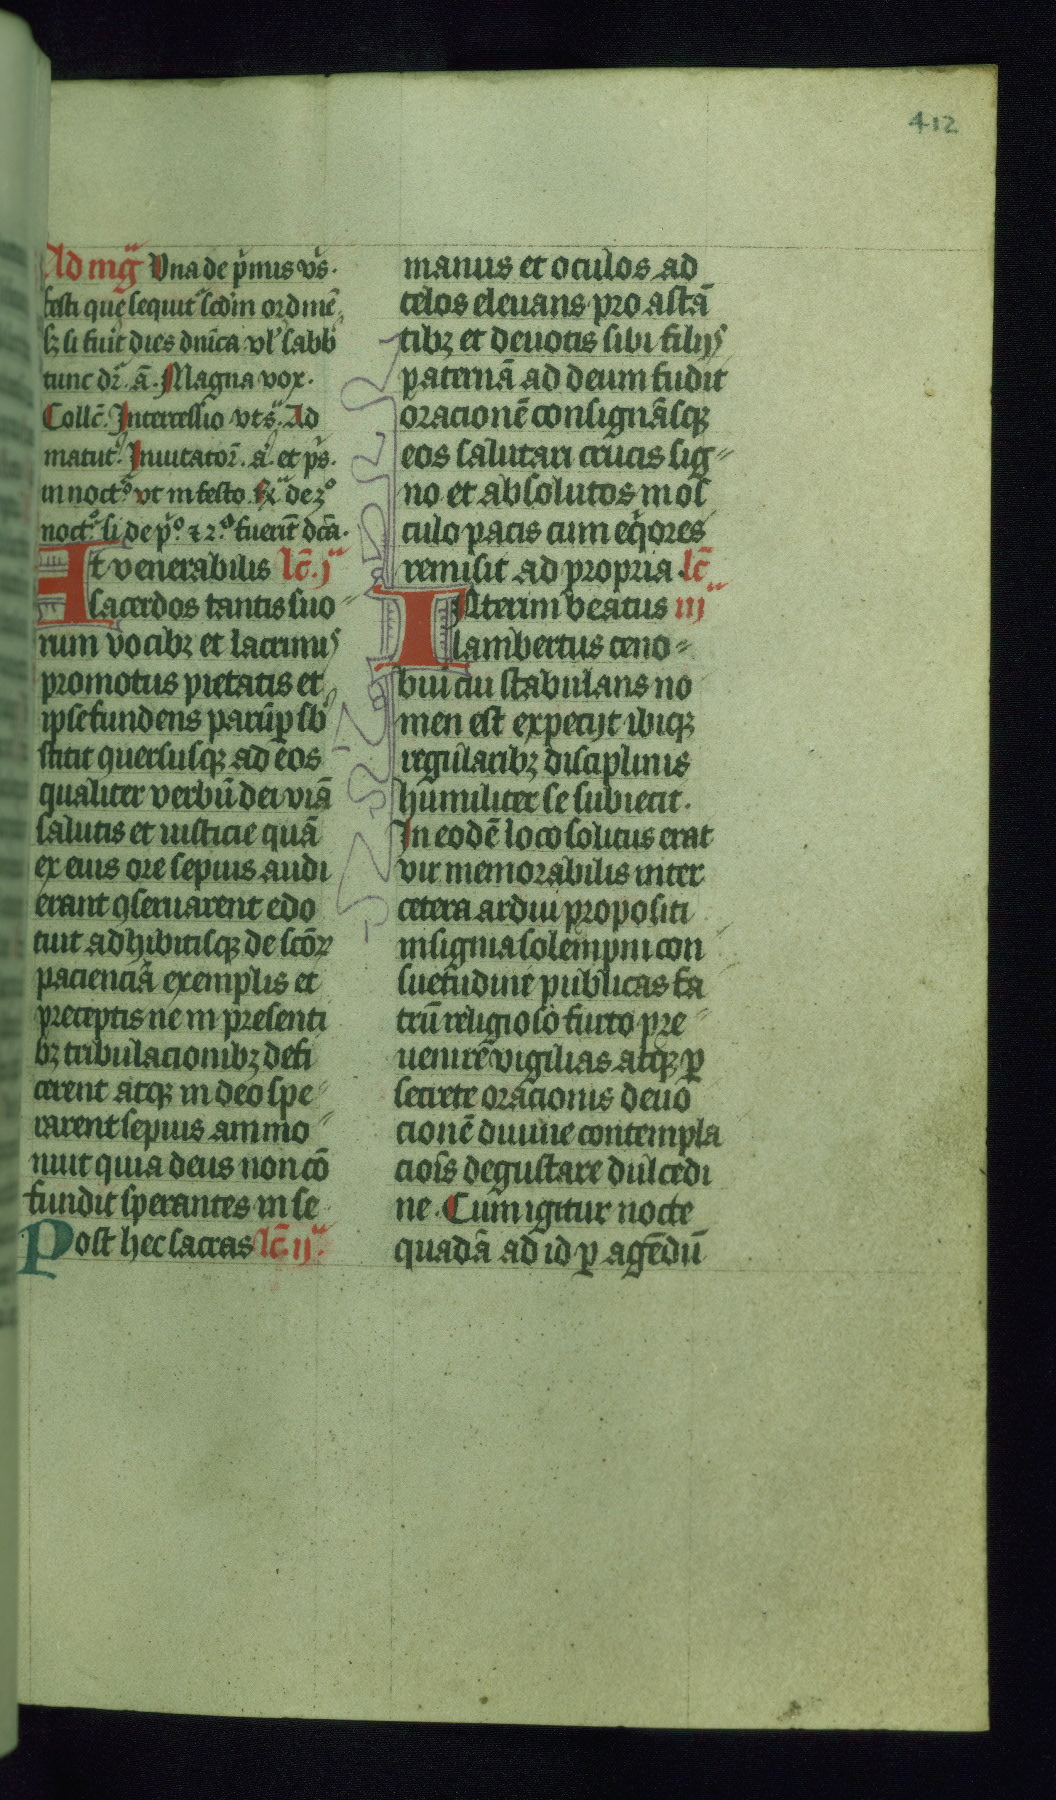 412
Ad mg̃ Una de p̃mus ṽs.
festi que sequit᷑ scd̃m ordinẽ
sꝫ si fuit dies dñica vl᷑ sabb᷑
tunc dr̃. ã. Magna vox.
Collc̃. Intercessio vt sᷓ. Ad
matut᷑. Inuitator̃. ã et p̃s.
in noct᷑ vt in festo. Rͣ de 3º
noct᷑ si de pº ⁊ 2º fuerĩt dc̃a.
Et venerabilis lc̃. jª
sacerdos tantis suo
rum vocibꝫ et lacrimis
promotus pietatis et
ipse fundens parũꝑ sb᷑
stitit ꝯuersusqꝫ ad eos
qualiter verbũ dei viã
salutis et iusticie quã
ex eius ore sepius audi
erant ꝯseruarent edo
cuit adhibitisqꝫ de sc̃oꝝ
paciencia exemplis et
preceptis ne in presenti
bꝫ tribulacionibꝫ defi
cerent atqꝫ in deo spe
rarent sepius ammo
nuit quia deus non cõ
fundit sperantes in se
Post hec sacras lc̃. ijª.
manus et oculos ad
celos eleuans pro astã
tibꝫ et deuotis sibi filijs
paternã ad deum fudit
oracionẽ consignãsqꝫ
eos salutari crucis sig
no et absolutos in os
culo pacis cum eq̃ores
remisit ad propria. lc̃
INterim beatus iijª
lambertus ceno
biũ cui stabulans no
men est expecijt ibiqꝫ
regularibꝫ disciplinis
humiliter se subiecit.
In eodẽ loco solitus erat
vir memorabilis inter
cetera ardui propositi
insignia solempni con
suetudine publicas fra
trũ religioso furto pre
uenirẽ vigilias atqꝫ ꝑ
secrete oracionis deuo
cionẽ diuine contempla
cois̃ degustare dulcedi
ne. Cum igitur nocte
quadã ad id ꝑ agẽdũ